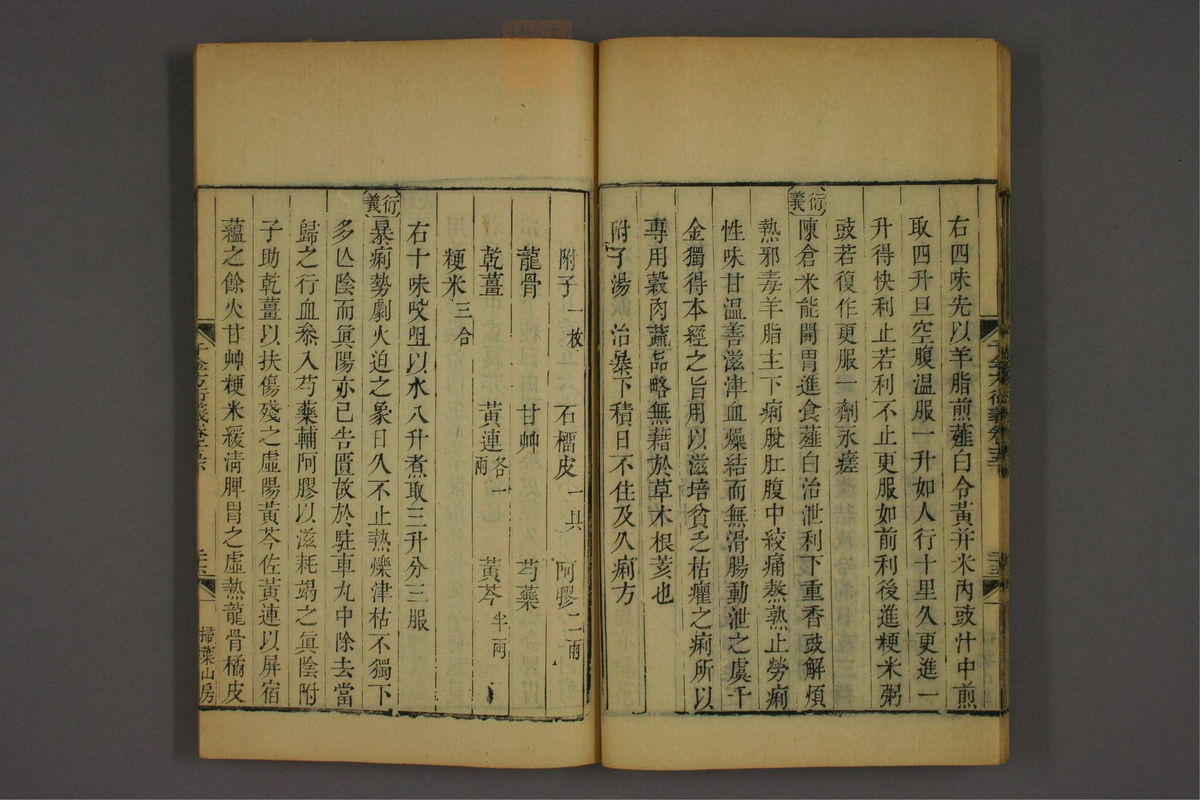 右四味先以羊脂煎薤白令黃并米內豉汁中煎
取四升旦空腹溫服一升如人行十里久更進一
升得快利止若利不止更服如前利後進粳米粥
豉若復作更服一劑永瘥
衍義
陳倉米能開胃進食薤白治泄利下重香豉解煩
熱邪毒羊脂主下痢脫肛腹中絞痛熬熟止勞痢
性味甘溫善滋津血燥結而無滑腸動泄之虞千
金獨得本經之旨用以滋培貧乏枯癯之痢所以
專用穀肉蔬品略無藉於草木根荄也
附子湯 治暴下積日不住及久痢方
附子一枚 石榴皮一具 阿膠二兩
龍骨 甘艸 芍藥
乾薑 黃連各一兩 黃芩半兩
粳米三合
右十味㕮咀以水八升煮取三升分三服
衍義
暴痢勢劇火迫之象日久不止熱爍津枯不獨下
多亾陰而眞陽亦已告匱故於駐車丸中除去當
歸之行血叅入芍藥輔阿膠以滋耗竭之眞陰附
子助乾薑以扶傷殘之虛陽黃芩佐黃連以屏宿
蘊之餘火甘艸粳米緩淸脾胃之虛熱龍骨橘皮
千金方衍義卷十五
掃葉山房